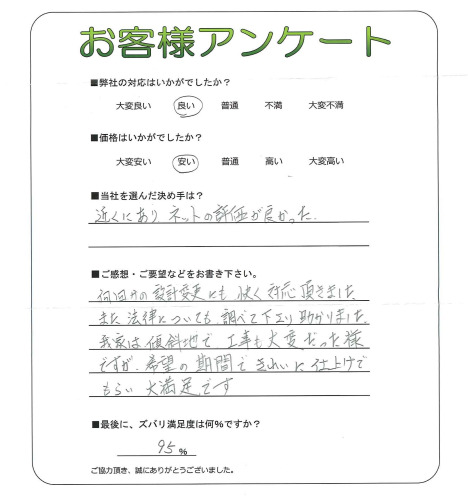 お客様アンケート
■弊社の対応はいかがでしたか？
大変良い 良い 普通 不満 大変不満
■価格はいかがでしたか？
大変安い 安い 普通 高い 大変高い
■当社を選んだ決め手は？
近くにあり ネットの評価が良かった.
■ご感想・ご要望などをお書き下さい。
何回かの設計変更にも 快く対応頂きました
また 法律についても 調べて下さり助かりました。
我家は 傾斜地で 工事も大変だった様
ですが、希望の期間できれいに仕上げて
もらい 大満足です
■最後に、ズバリ満足度は何％ですか？
95 %
ご協力頂き、誠にありがとうございました。